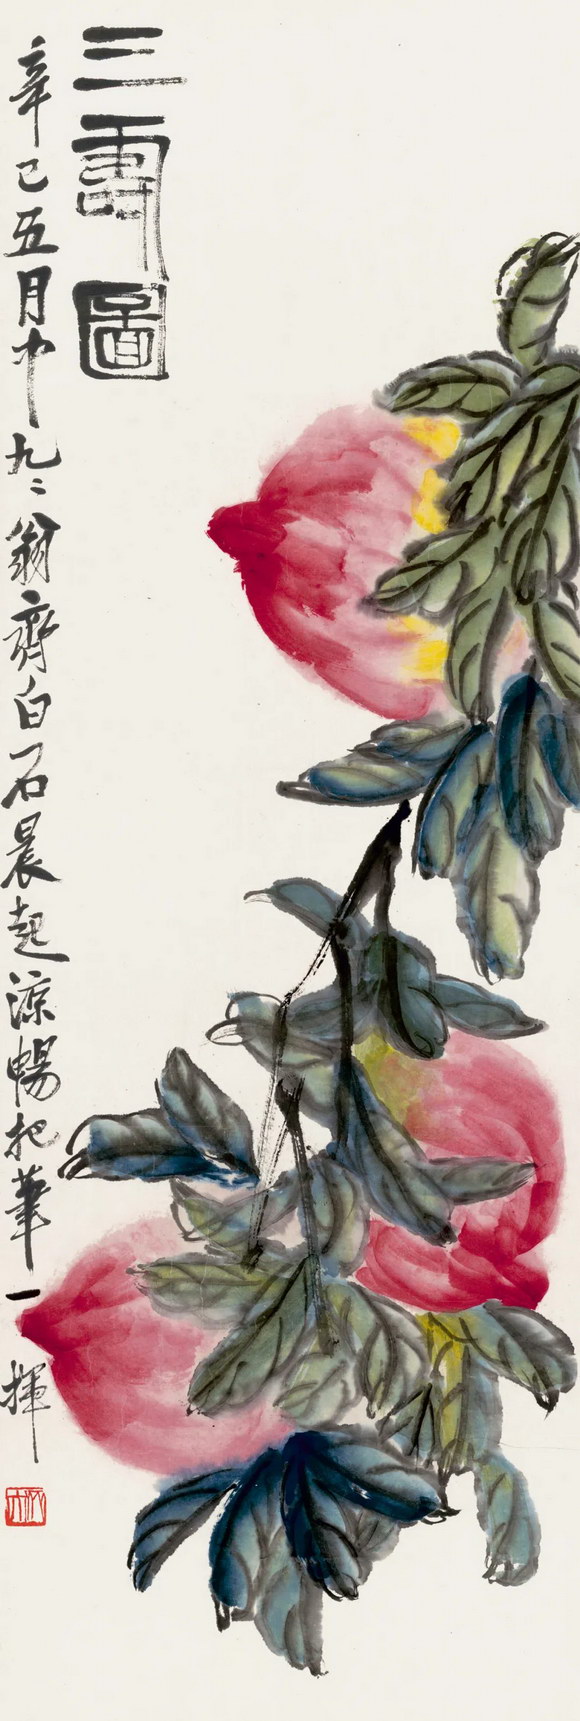 三壽圖
辛巳五月中九〻翁齊白石晨起涼暢把筆一揮